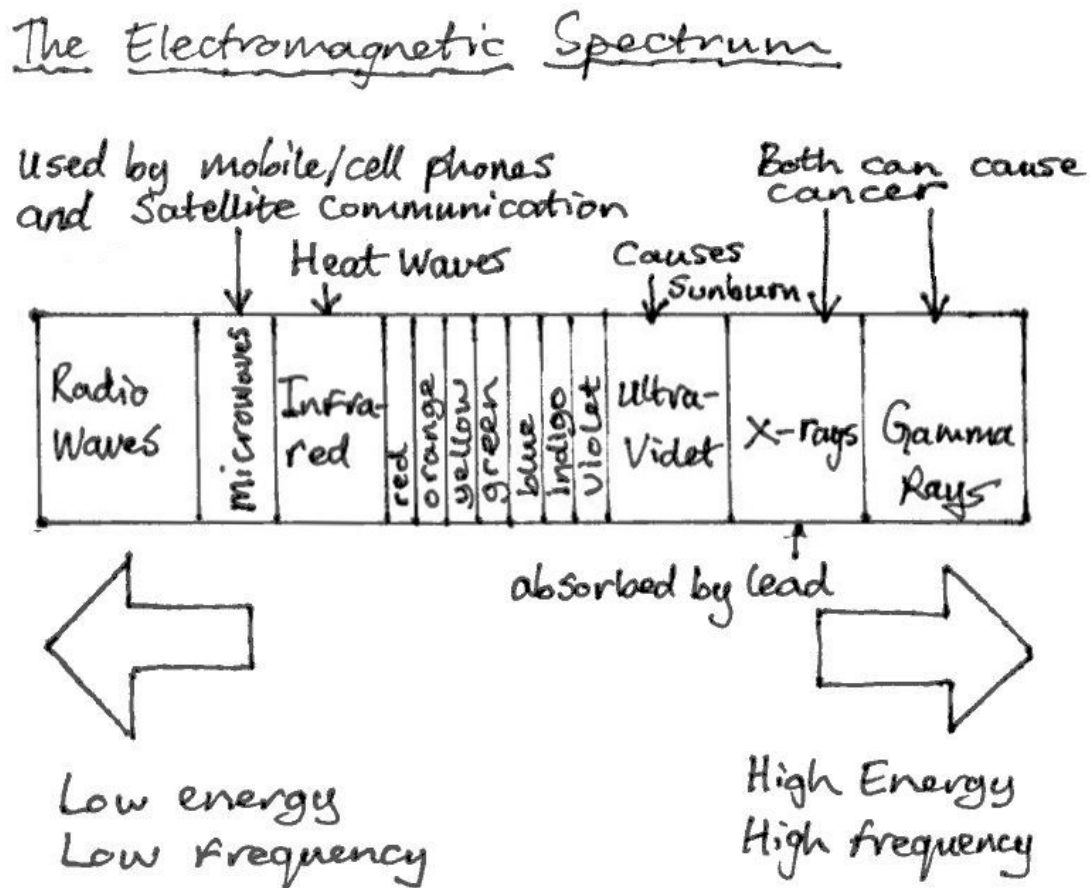 The Electromagnetic Spectrum
used by mobile/cell phones
and Satellite Communication
Both can cause
cancer
Heat Waves
Causes
Sunburn
Radio
Waves
microwaves
Infra-
red
red
orange
yellow
green
blue
indigo
violet
Ultra-
Violet
X-rays
Gamma
Rays
absorbed by lead
Low energy
Low Frequency
High Energy
High frequency